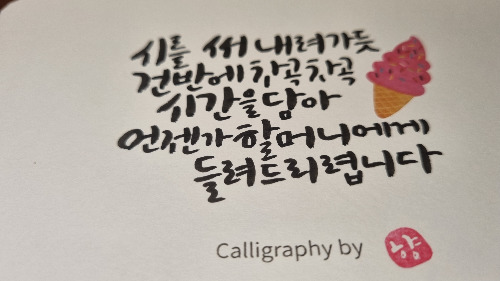 시를 써 내려가듯
건반에 차곡차곡
시간을 담아
언젠가 할머니에게
들려드리렵니다
Calligraphy by 냥